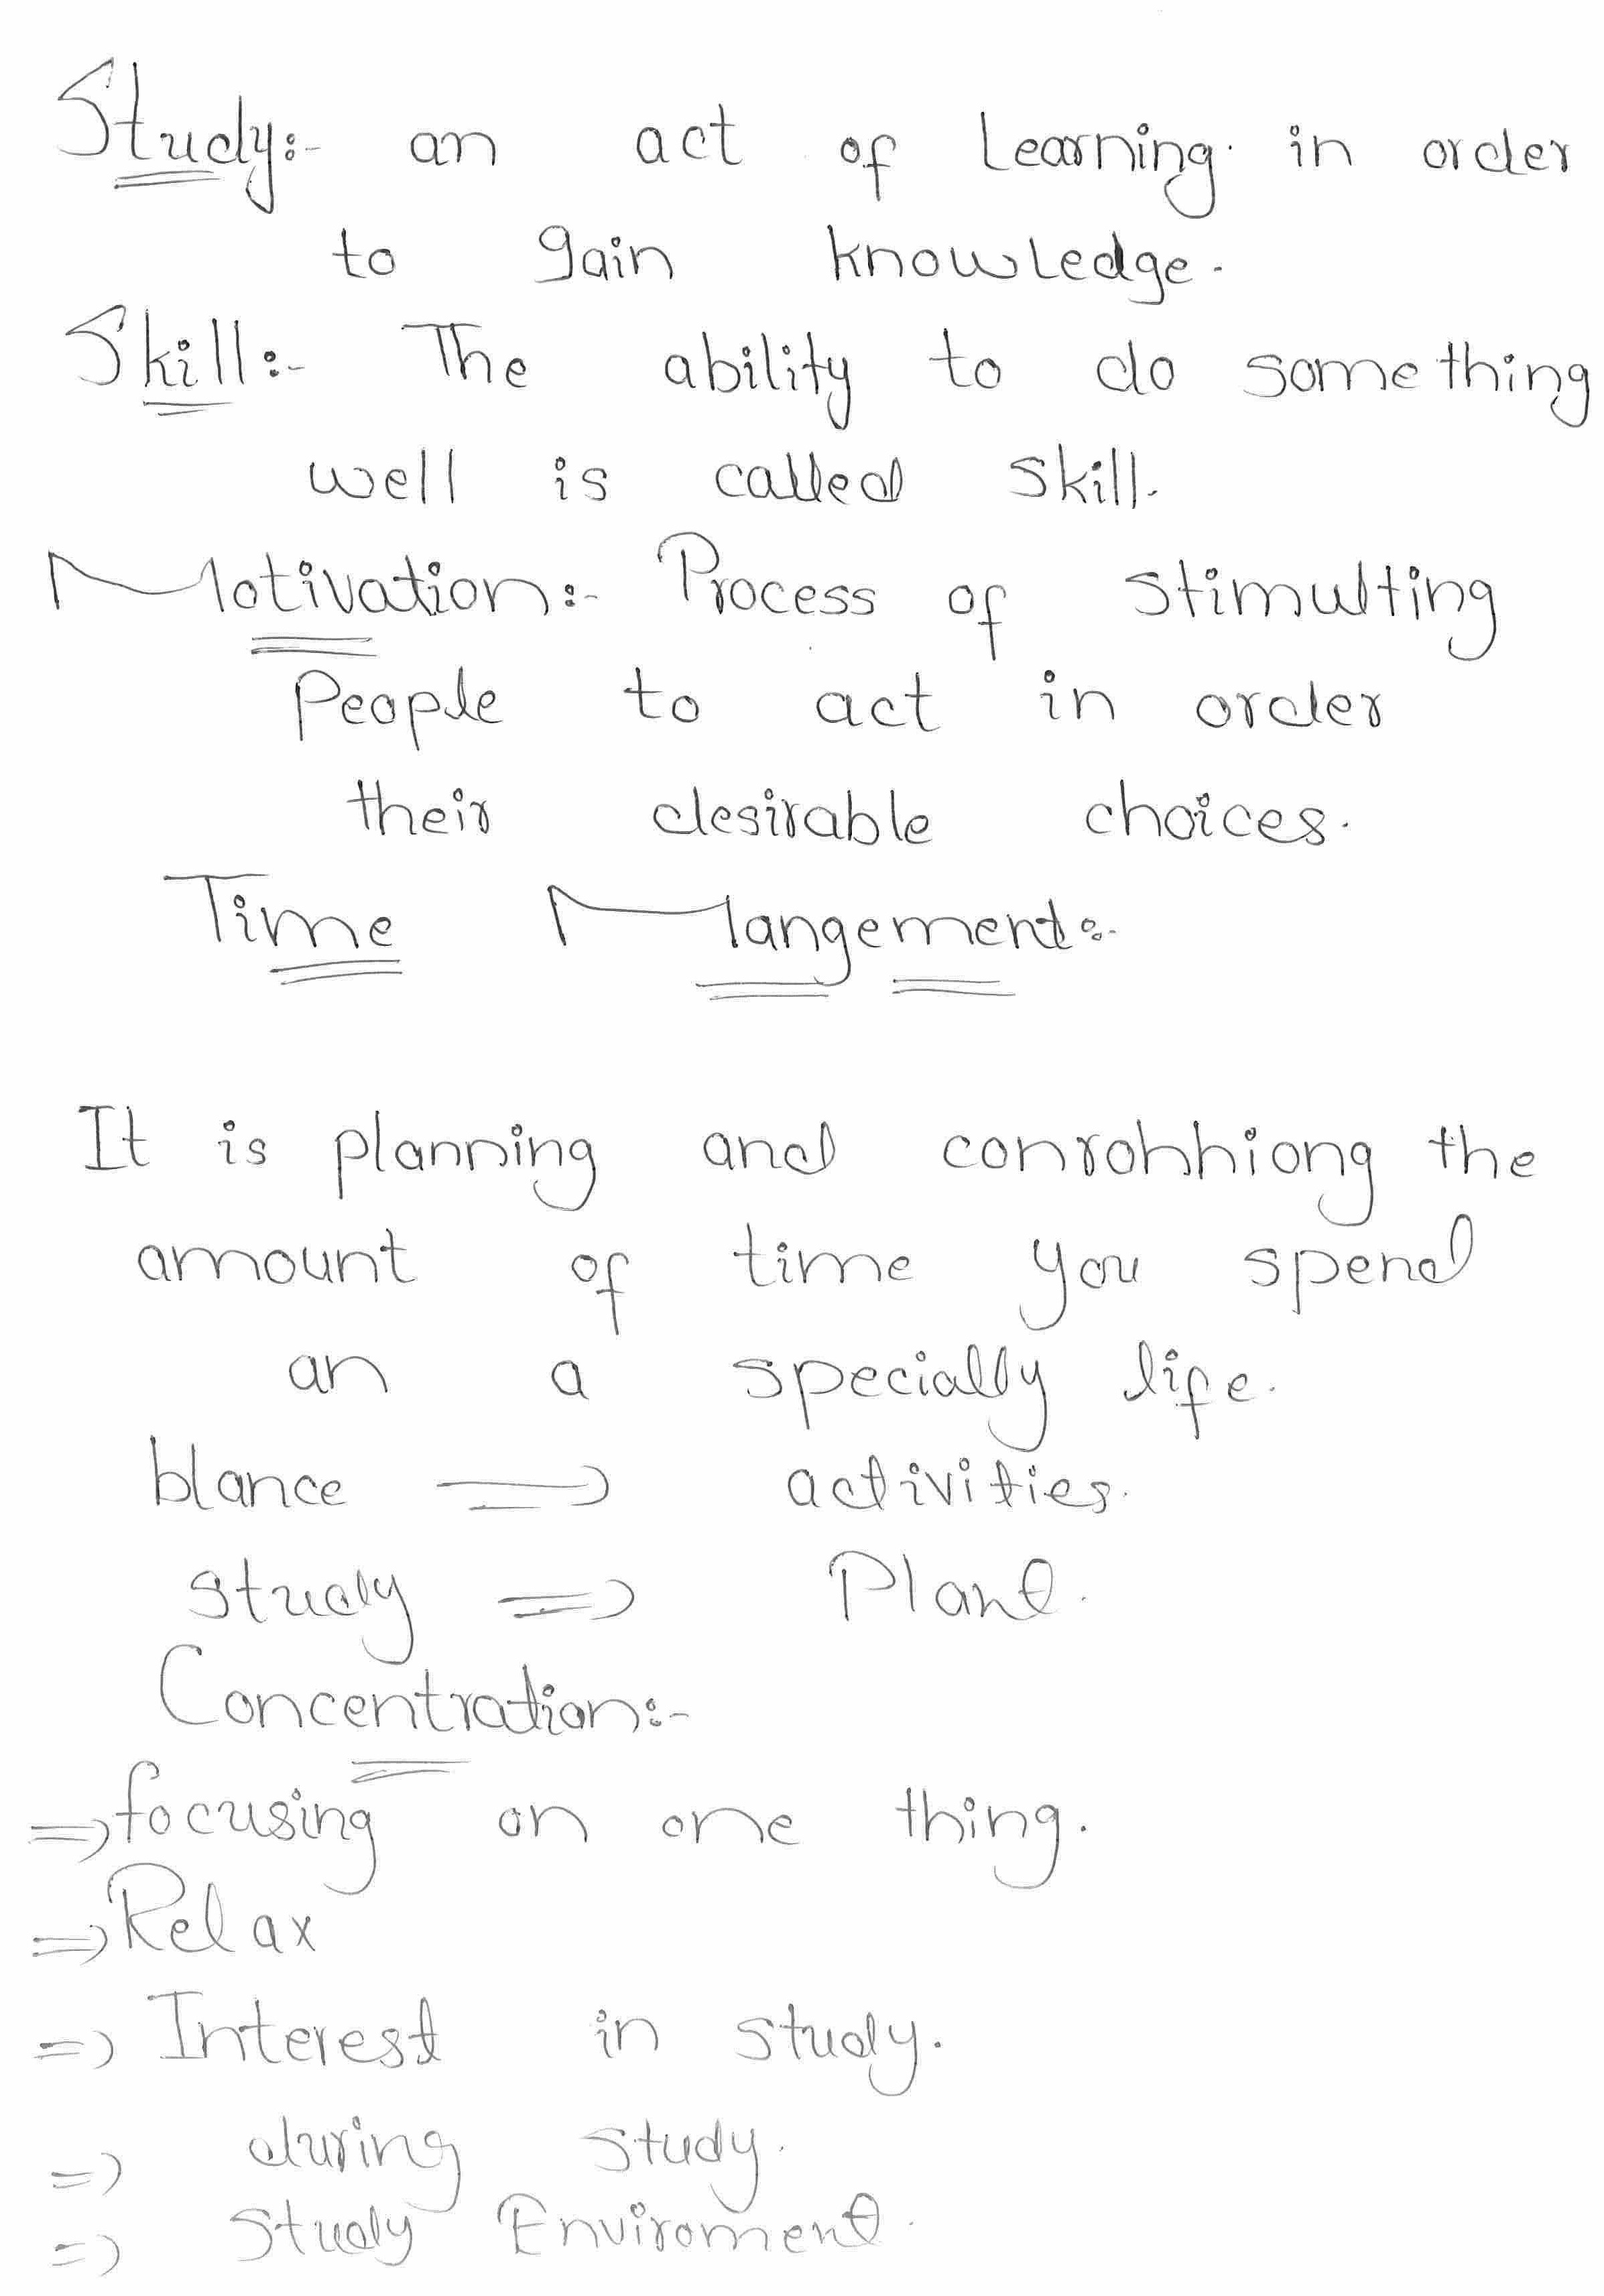 Study:- an act of Learning in order
to gain knowledge.
Skill:- The ability to do something
well is called skill.
Motivation:- Process of stimulting
People to act in order
their desirable choices.
Time Mangement:-
It is planning and conrohhiong the
amount of time you spend
an a specially life.
blance => activities.
study => Plant.
Concentration:-
=> focusing on one thing.
=> Relax
=> Interest in study.
=> during study.
=> Study Enviroment.